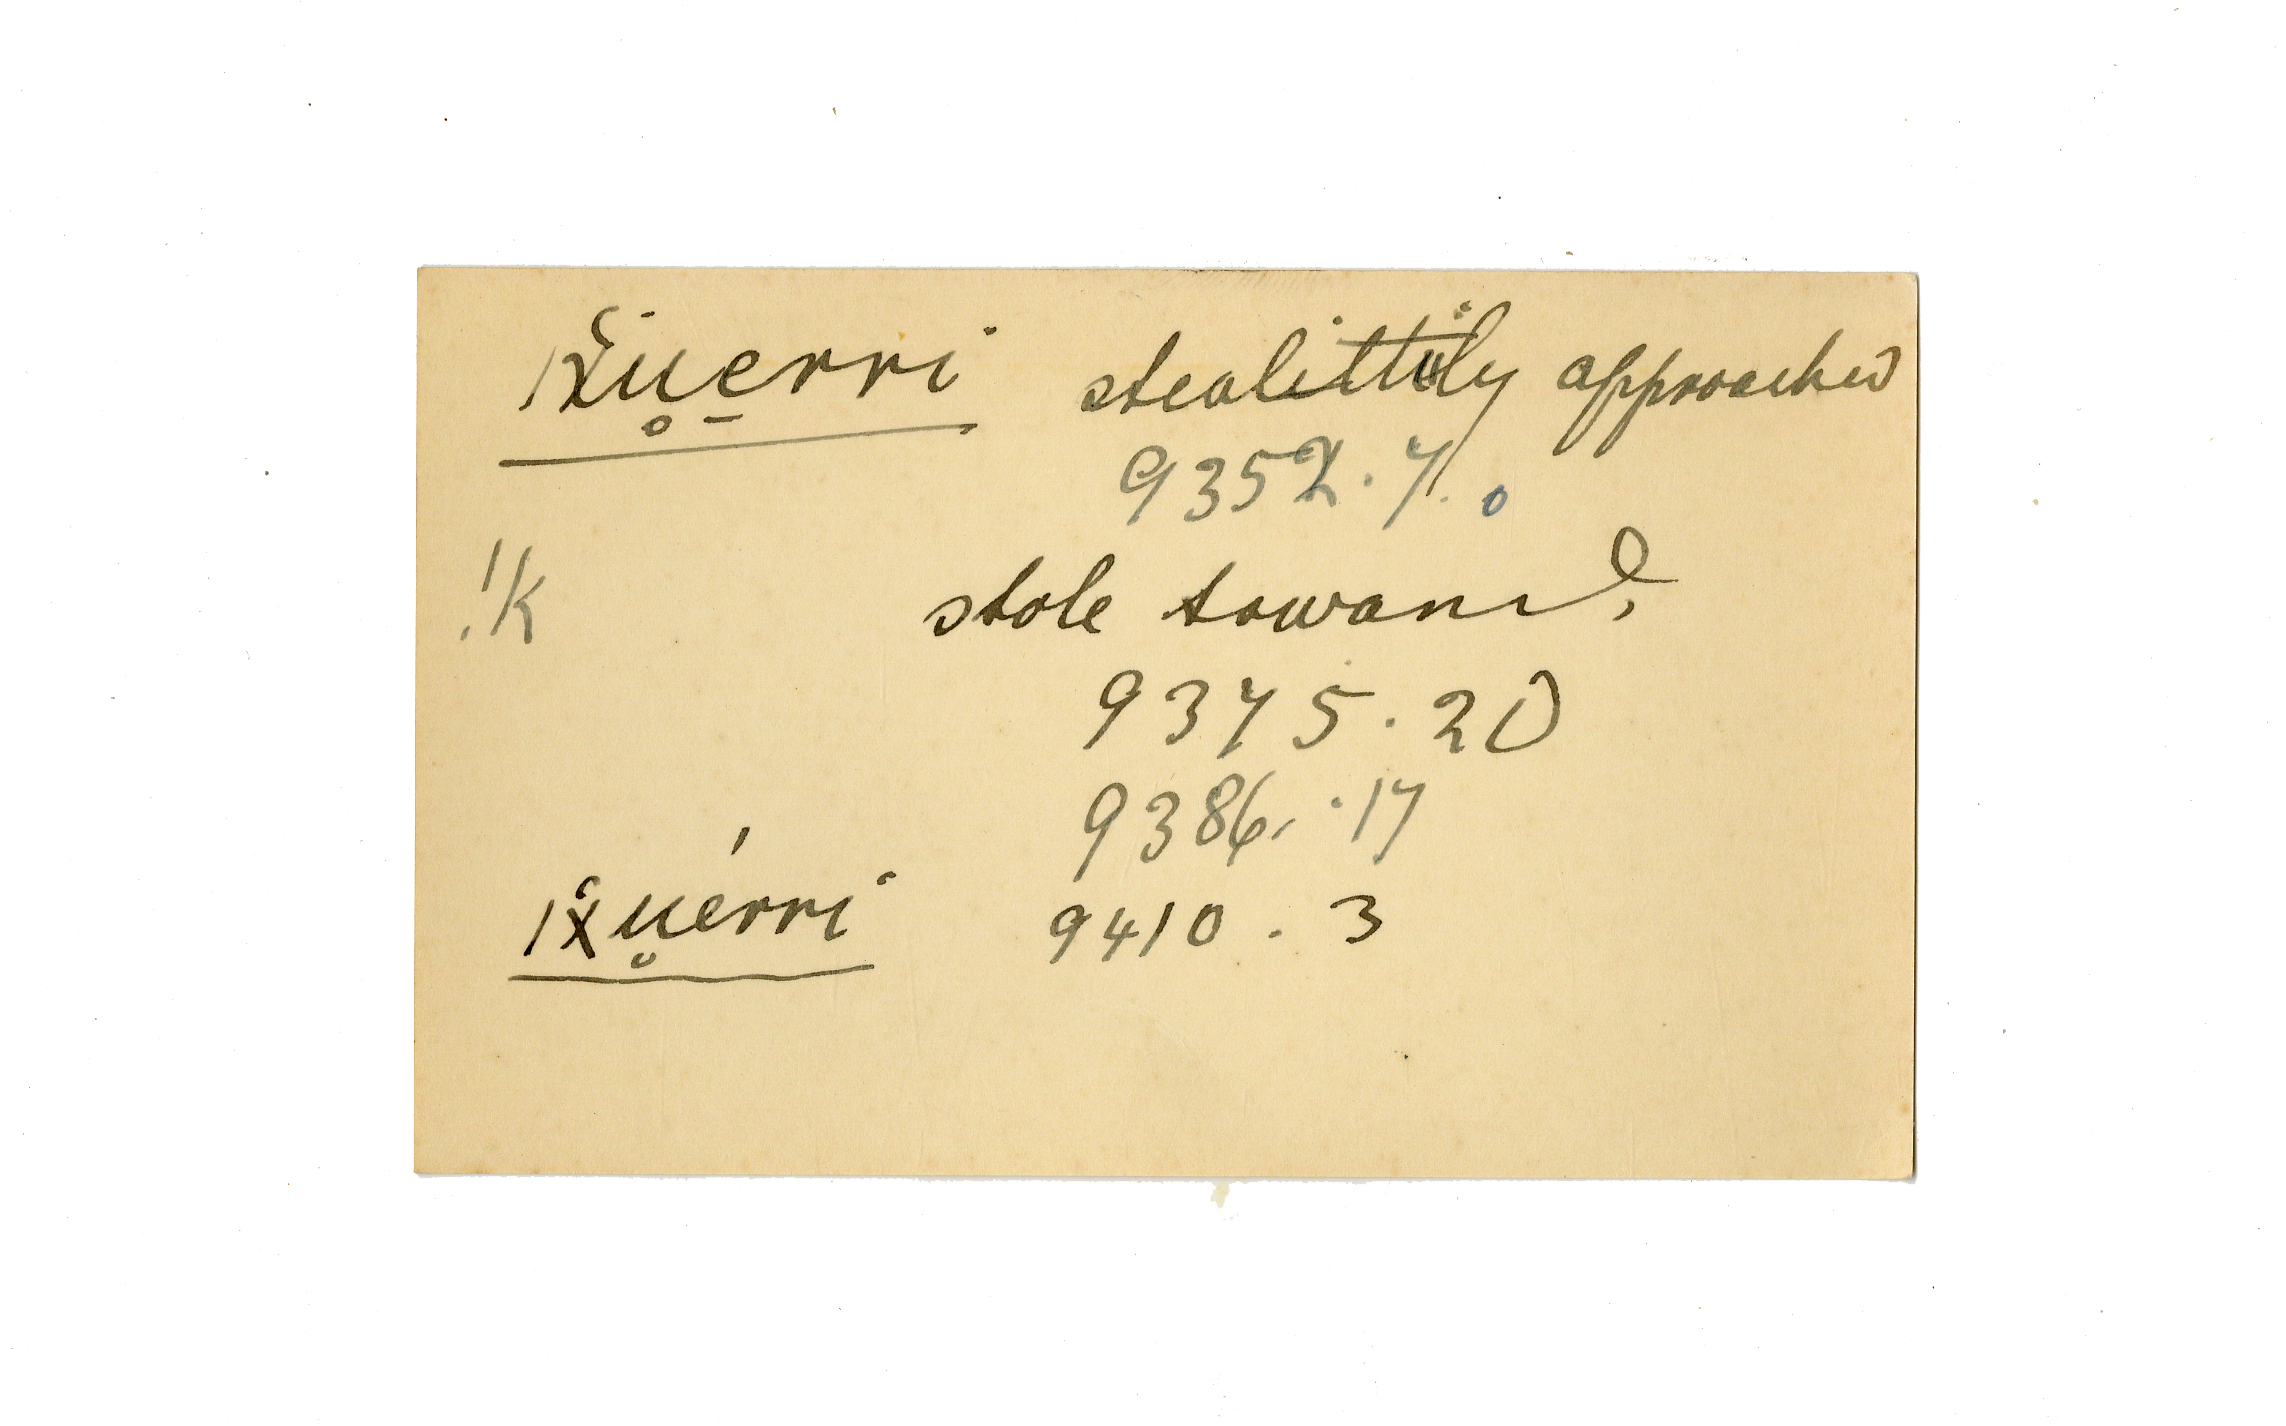 |x̆u̥e̱rri stealittily approached
9352.7.
!k stole toward,
9375.20
9386.17
|x̆u̥érri 9410.3